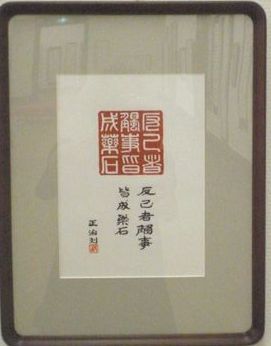 反己者
觸事皆
成藥石
反己者觸事
皆成藥石
正治刻